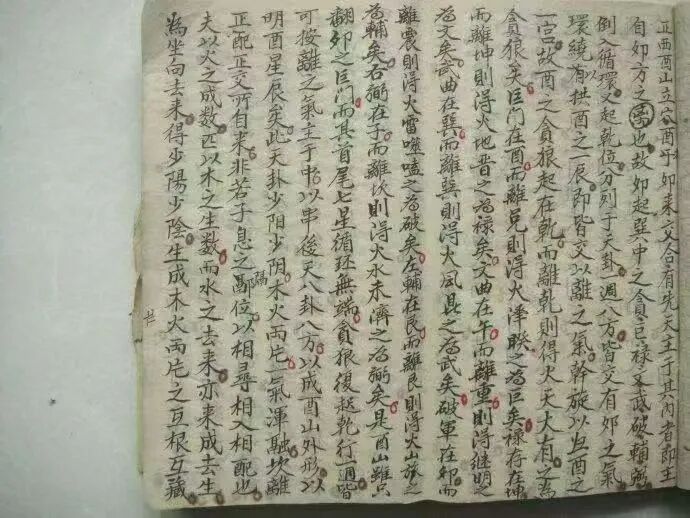 正西酉山立 酉乎卯來 交合有先天主于其內者即主
自卯方之 也故卯起巽中之貪巨祿文武破輔弼
倒入循環又起乾位分列于天卦一週八方皆交有卯之氣
環繞有以拱酉之一辰即皆交以離之氣幹旋以 酉之
一宮故酉之貪狼起在乾而離乾則得火天大有之為
貪狼矣巨門在酉而離兌則得火澤睽之為巨矣祿存在坤
而離坤則得火地晋之為祿矣文曲在午而離重則得继明之
為文矣武曲在巽而離巽則得火風鼎之為武矣破軍在卯而
離震則得火雷噬嗑之為破矣左輔在艮而離艮則得火山旅之
為輔矣右弼在子而離坎則得火水未濟之為弼矣是酉山雖只
翻卯之巨門而其首尾七星循环無端貪狼復起乾行一週皆
可按離之氣主于中以串後天八卦八方以成酉山外形以
明酉星辰矣此天卦少阳少阴木火両片一氣渾融坎離
正配正交所自来非若子息之隔 位以相尋相入相配也
夫以火之成数匹以木之生数而水之去来亦来成去生
為坐向去来得少陽少陰生成木火両片之互根互藏